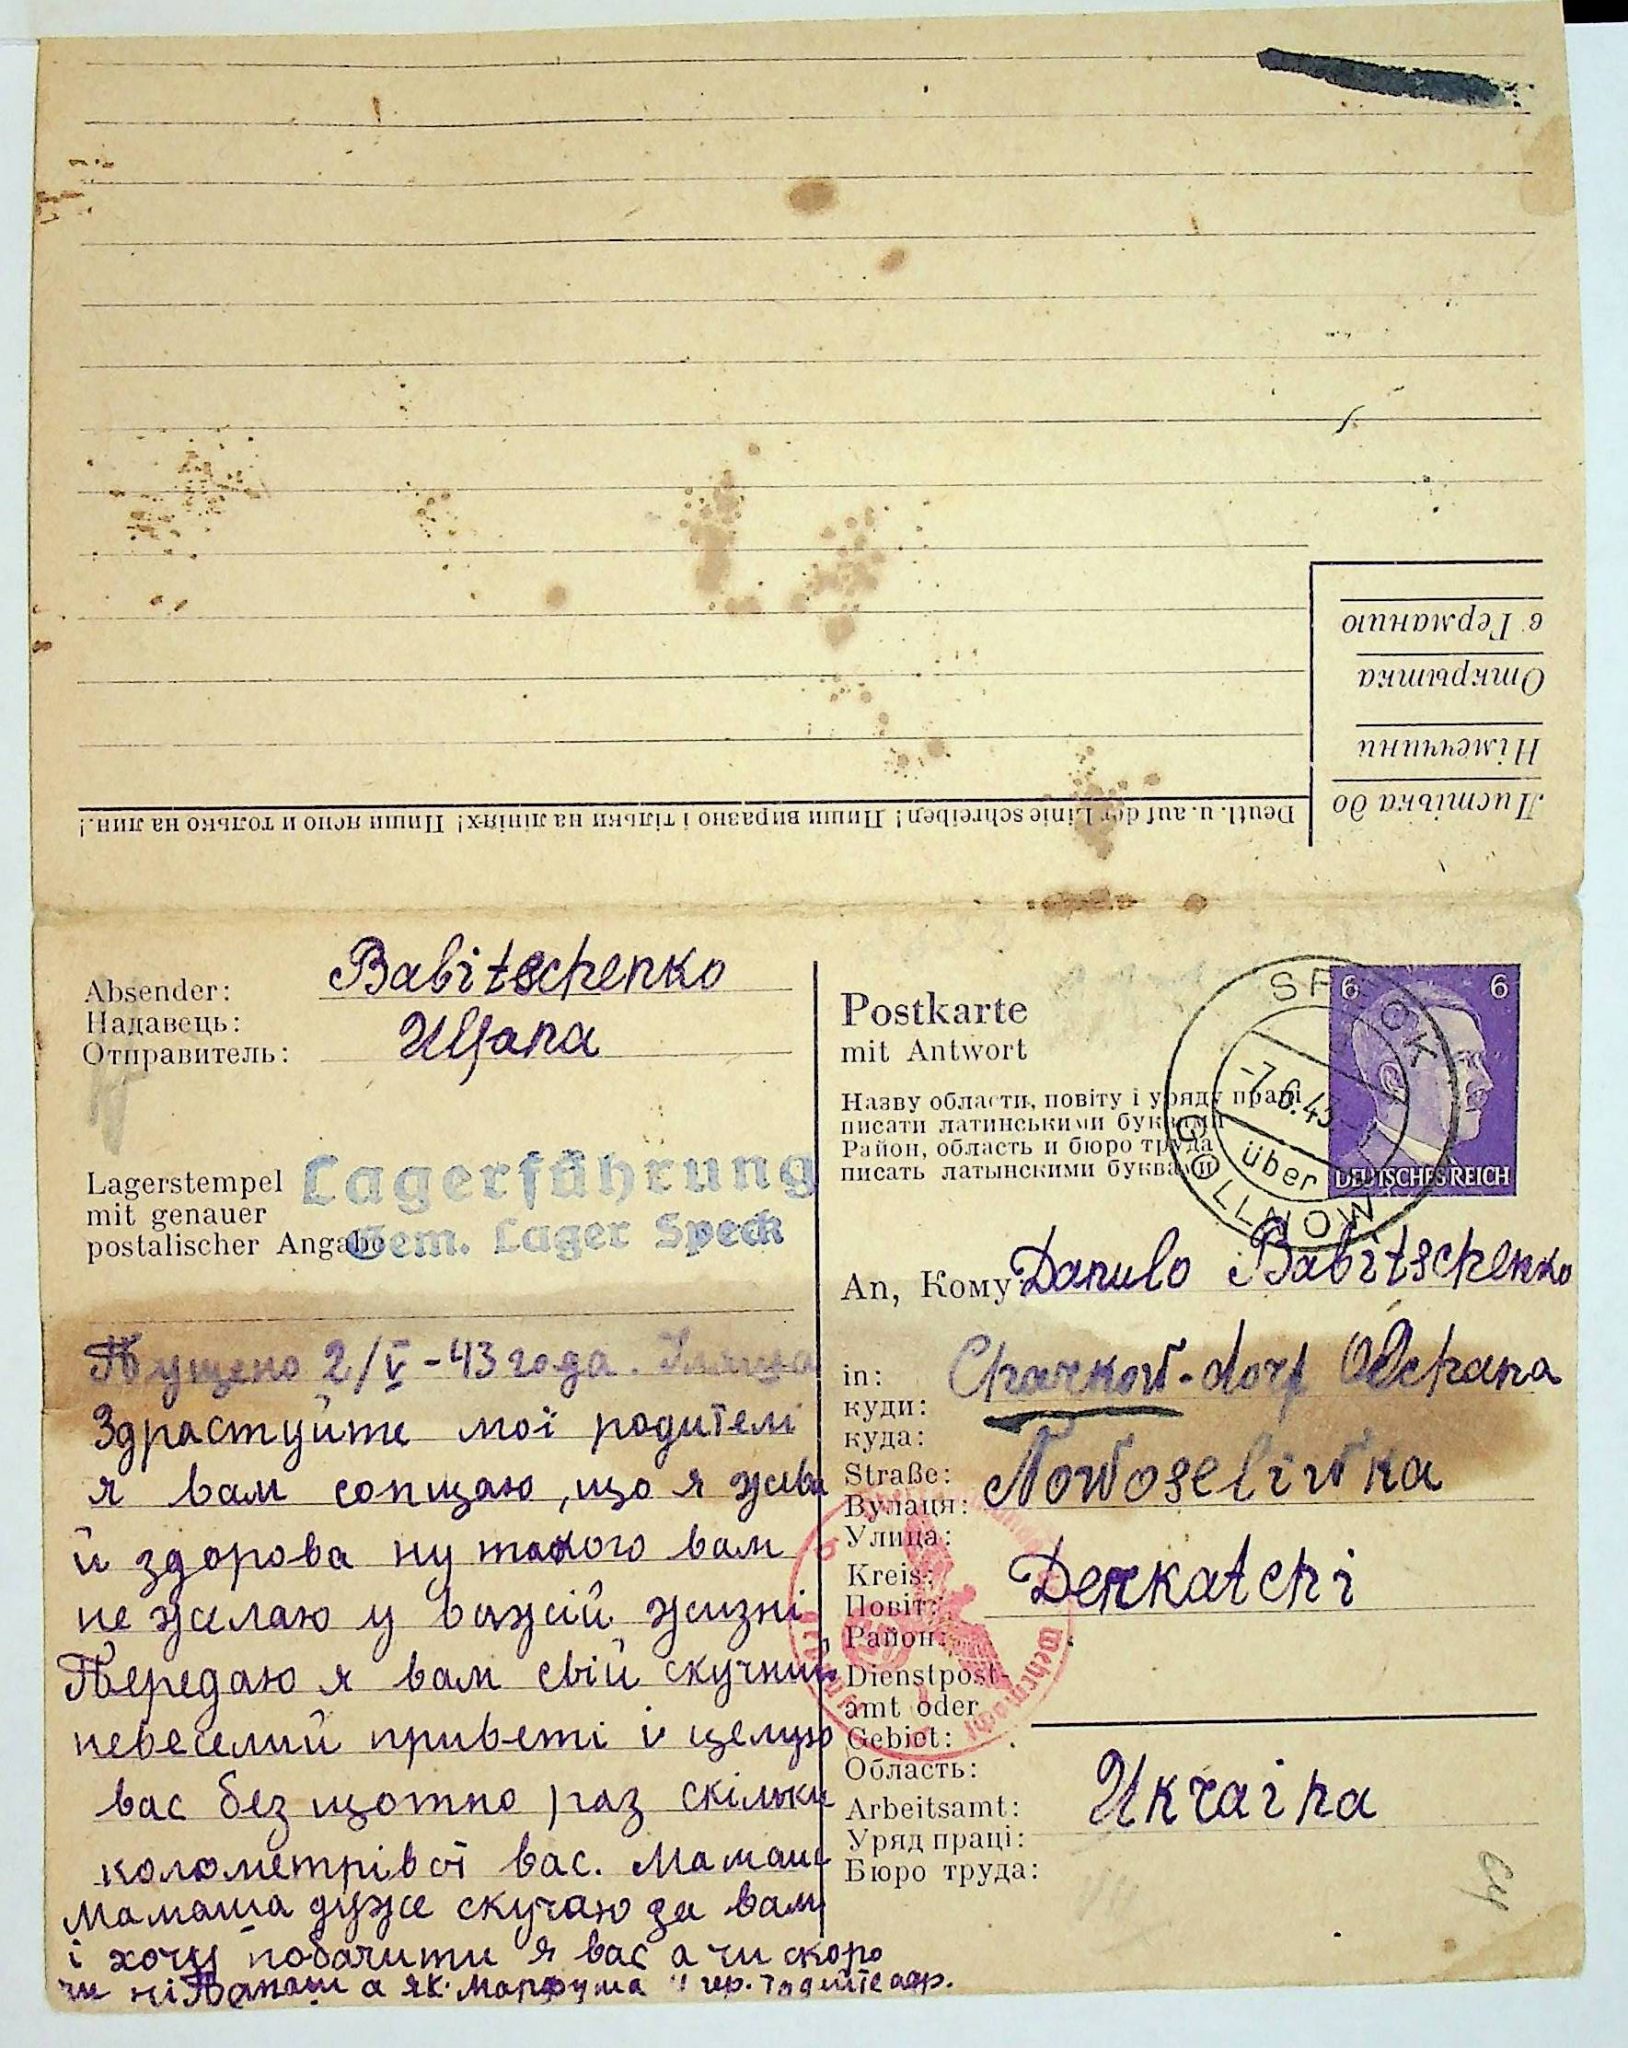 Deutl. u. auf der Linie schreiben! Пиши виразно і тільки на лініях! Пиши ясно и только на лин.!
Листівка до
Німеччини
Открытка
в Германию
Absender:
Надавець:
Отправитель:
Babitschenko
Uljana
Lagerstempel
mit genauer
postalischer Angabe
Lagerführung
Gem. Lager Speck
Пущено 2/V - 43 года.
Здраст﻿уйте мої родителі
я вам сопщаю, що я жива
й здорова ну такого вам
не желаю у важій жизні
Передаю я вам свій скучний
невеселий привєті і целую
вас без щотно раз скільки
колометрівоі вас. Мамаш
Мамаша дуже скучаю за вам
і хочу побачити я вас а чи скоро
чи ні Папаш а як. Марфума
Postkarte
mit Antwort
Назву области, повіту і уряду праці
писати латинськими буквами
Район, область и бюро труда
писать латынскими буквами
6 6
DEUTSCHES REICH
SPECK
-7.6.43
über
GOLLNOW
An, Кому: Danulo Babitschenko
in:
куди:
куда:
Charkow - dorf Olchana
Straße:
Вулаця:
Улица:
Nowoseliwka
Kreis:
Повіт:
Район:
Derkatchi
Dienstpost-
amt oder
Gebiet:
Область:
Arbeitsamt:
Уряд праці:
Бюро труда:
Ukraina
Wehrmacht